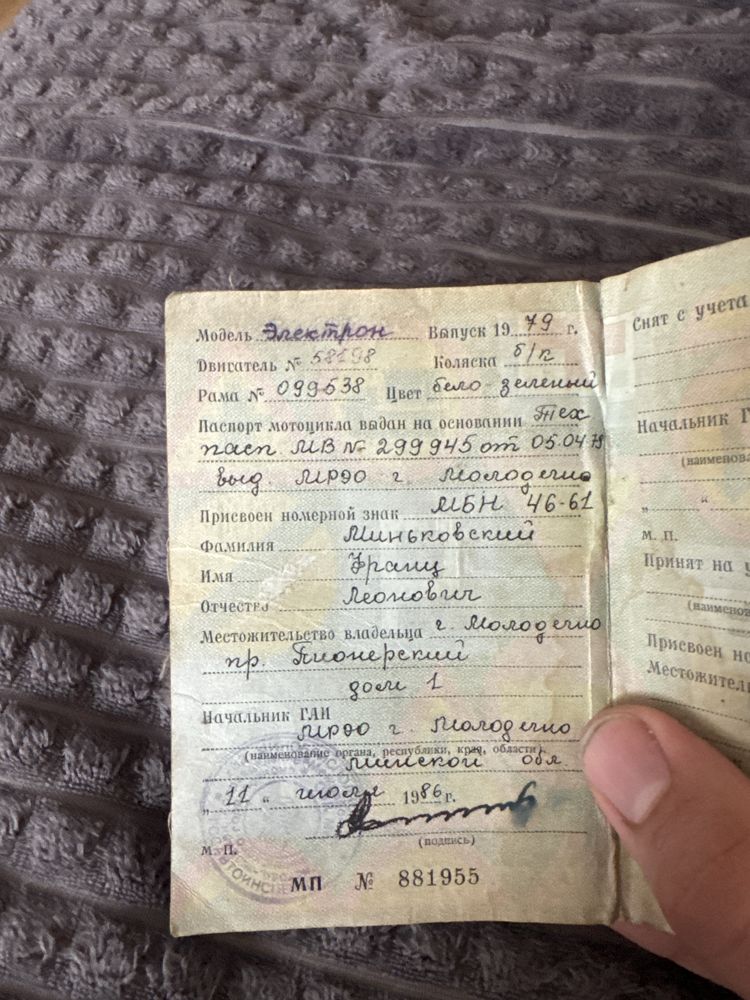 Модель Электрон Выпуск 1979 г.
Двигатель № 58198 Коляска б/к
Рама № 099538 Цвет бело зеленый
Паспорт мотоцикла выдан на основании Тех
пасп МВ № 299945 от 05.04.79
выд. МРЭО г. Молодечно
Присвоен номерной знак МБН 46-61
Фамилия Миньковский
Имя Франц
Отчество Леонович
Местожительство владельца г. Молодечно
пр. Пионерский
дом 1
Начальник ГАИ
МРЭО г. Молодечно
(наименование органа, республики, края, области)
Минской обл.
„11“ июля 1986 г.
(подпись)
М. П.
МП № 881955
Снят с учета
Начальник
„ “
М. П.
Принят на
Присвоен